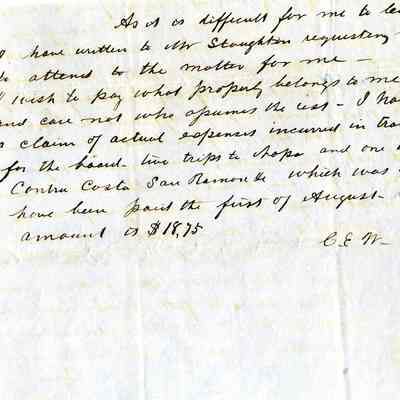 As it is difficult for me to le
I have written to Mr Stoughton requesting
to attend to the matter for me —
I wish to pay what properly belongs to me
and care not who assumes the rest — I ha
a claim of actual expenses incurred in tra
for the board - two trips to Napa and one
Contra Costa San Ramon Ho which was
have been paid the first of August -
amount is $18,75
C. E. W —